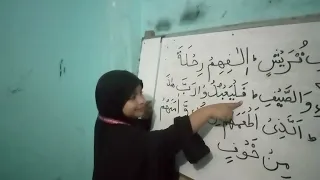 قُرَيْشٍ اٖلٰفِهِمْ رِحْلَةَ
وَالصَّيْفِ فَلْيَعْبُدُوْا رَبَّ هٰذَا
الَّذِىْ اَطْعَمَهُمْ اٰمَنَهُمْ
مِنْ خَوْفٍ